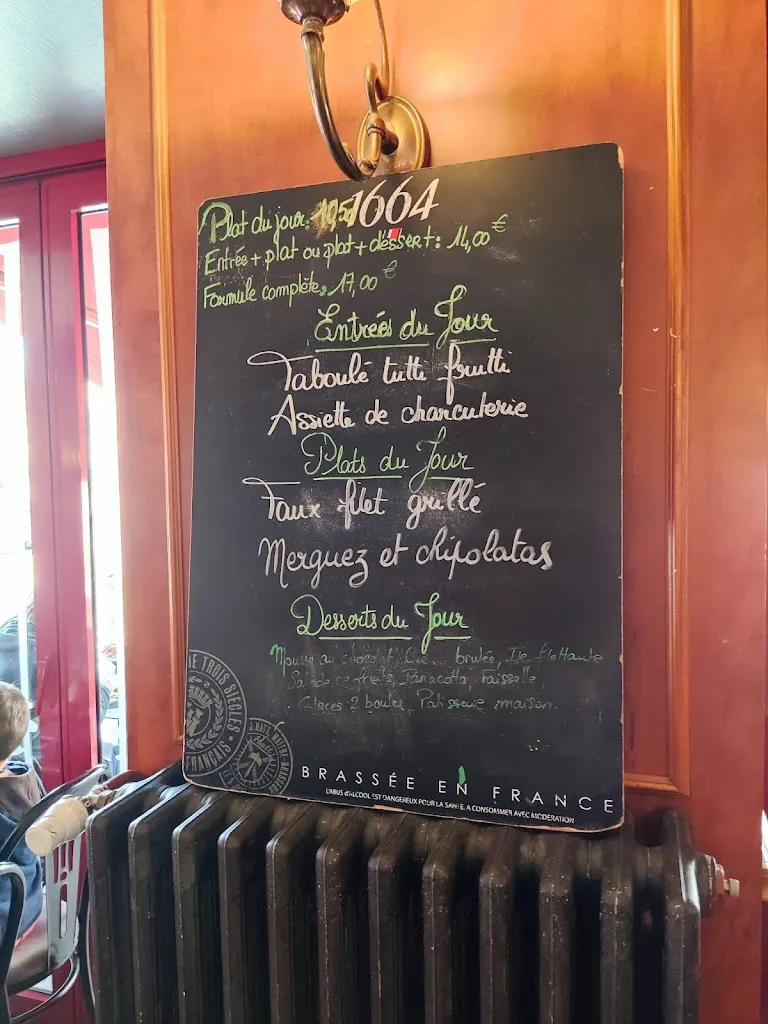 1664
Plat du jour: 10,50
Entrée + plat ou plat + dessert: 14,00 €
Formule complète, 17,00 €
Entrées du Jour
Taboulé tutti frutti
Assiette de charcuterie
Plats du Jour
Faux filet grillé
Merguez et chipolatas
Desserts du Jour
Mousse au chocolat, brulée, Ile flottante
Salade de fruits, Panacotta, Faisselle,
Glaces 2 boules, Patisserie maison.
IE TROIS SIÈCLES
FRANÇAIS
BRASSÉE EN FRANCE
L'ABUS D'ALCOOL EST DANGEREUX POUR LA SANTÉ. A CONSOMMER AVEC MODERATION